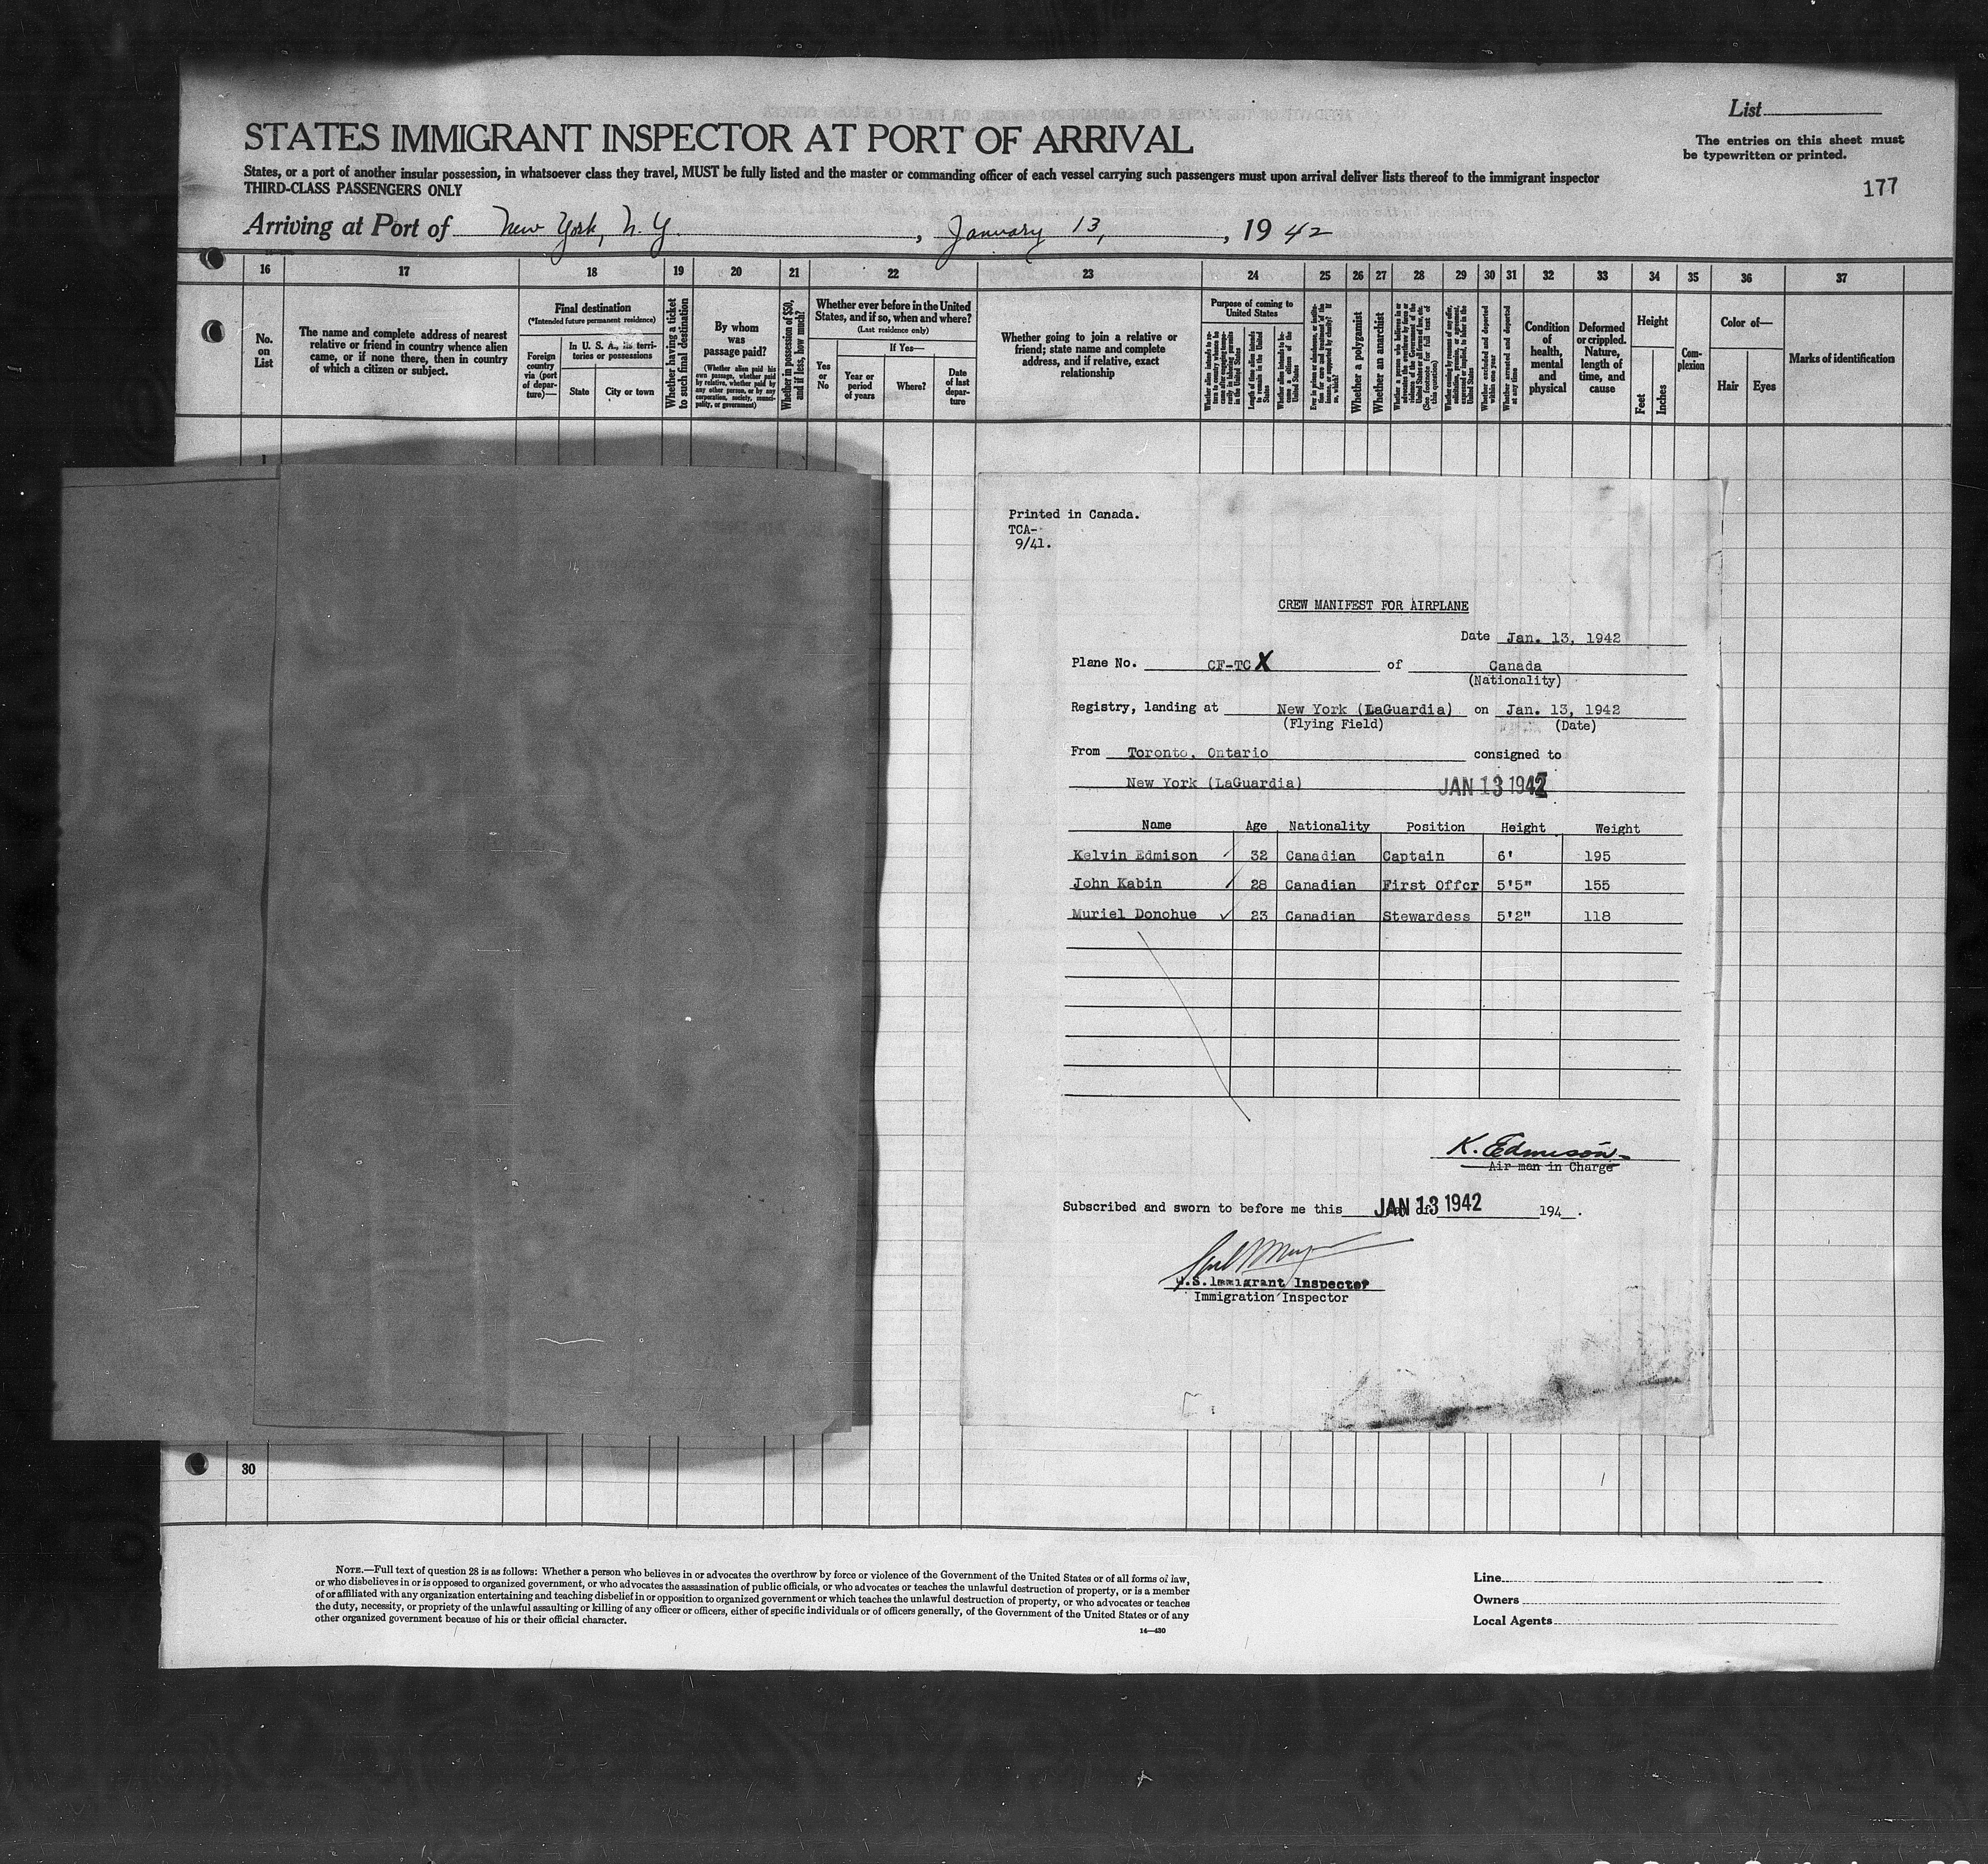 List
The entries on this sheet must
be typewritten or printed.
177
STATES IMMIGRANT INSPECTOR AT PORT OF ARRIVAL
States, or a port of another insular possession, in whatsoever class they travel, MUST be fully listed and the master or commanding officer of each vessel carrying such passengers must upon arrival deliver lists thereof to the immigrant inspector
THIRD-CLASS PASSENGERS ONLY
Arriving at Port of New York, N.Y. , January 13, , 1942
16 17 18 19 20 21 22 23 24 25 26 27 28 29 30 31 32 33 34 35 36 37
No. on List
The name and complete address of nearest relative or friend in country whence alien came, or if none there, then in country of which a citizen or subject.
Final destination
(*Intended future permanent residence)
Foreign country via (port of departure)—
In U. S. A., its territories or possessions
State
City or town
Whether having a ticket to such final destination
By whom was passage paid?
(Whether alien paid his own passage, whether paid by relative, whether paid by any other person, or by any corporation, society, municipality, or government)
Whether in possession of $50, and if less, how much?
Whether ever before in the United States, and if so, when and where?
(Last residence only)
Yes or No
If Yes—
Year or period of years
Where?
Date of last departure
Whether going to join a relative or friend; state name and complete address, and if relative, exact relationship
Purpose of coming to United States
Whether a polygamist
Whether an anarchist
Condition of health, mental and physical
Deformed or crippled. Nature, length of time, and cause
Height
Feet
Inches
Complexion
Color of—
Hair
Eyes
Marks of identification
Printed in Canada.
TCA-
9/41.
CREW MANIFEST FOR AIRPLANE
Date Jan. 13, 1942
Plane No. CF-TCX of Canada
(Nationality)
Registry, landing at New York (LaGuardia) on Jan. 13, 1942
(Flying Field) (Date)
From Toronto, Ontario consigned to
New York (LaGuardia) JAN 13 1942
Name Age Nationality Position Height Weight
Kelvin Edmison ✓ 32 Canadian Captain 6' 195
John Kabin ✓ 28 Canadian First Offcr 5'5" 155
Muriel Donohue ✓ 23 Canadian Stewardess 5'2" 118
K. Edmison
Air man in Charge
Subscribed and sworn to before me this JAN 13 1942 194 .
U.S. Immigrant Inspector
Immigration Inspector
30
NOTE.—Full text of question 28 is as follows: Whether a person who believes in or advocates the overthrow by force or violence of the Government of the United States or of all forms of law,
or who disbelieves in or is opposed to organized government, or who advocates the assassination of public officials, or who advocates or teaches the unlawful destruction of property, or is a member
of or affiliated with any organization entertaining and teaching disbelief in or opposition to organized government or which teaches the unlawful destruction of property, or who advocates or teaches
the duty, necessity, or propriety of the unlawful assaulting or killing of any officer or officers, either of specific individuals or of officers generally, of the Government of the United States or of any
other organized government because of his or their official character.
14—430
Line
Owners
Local Agents